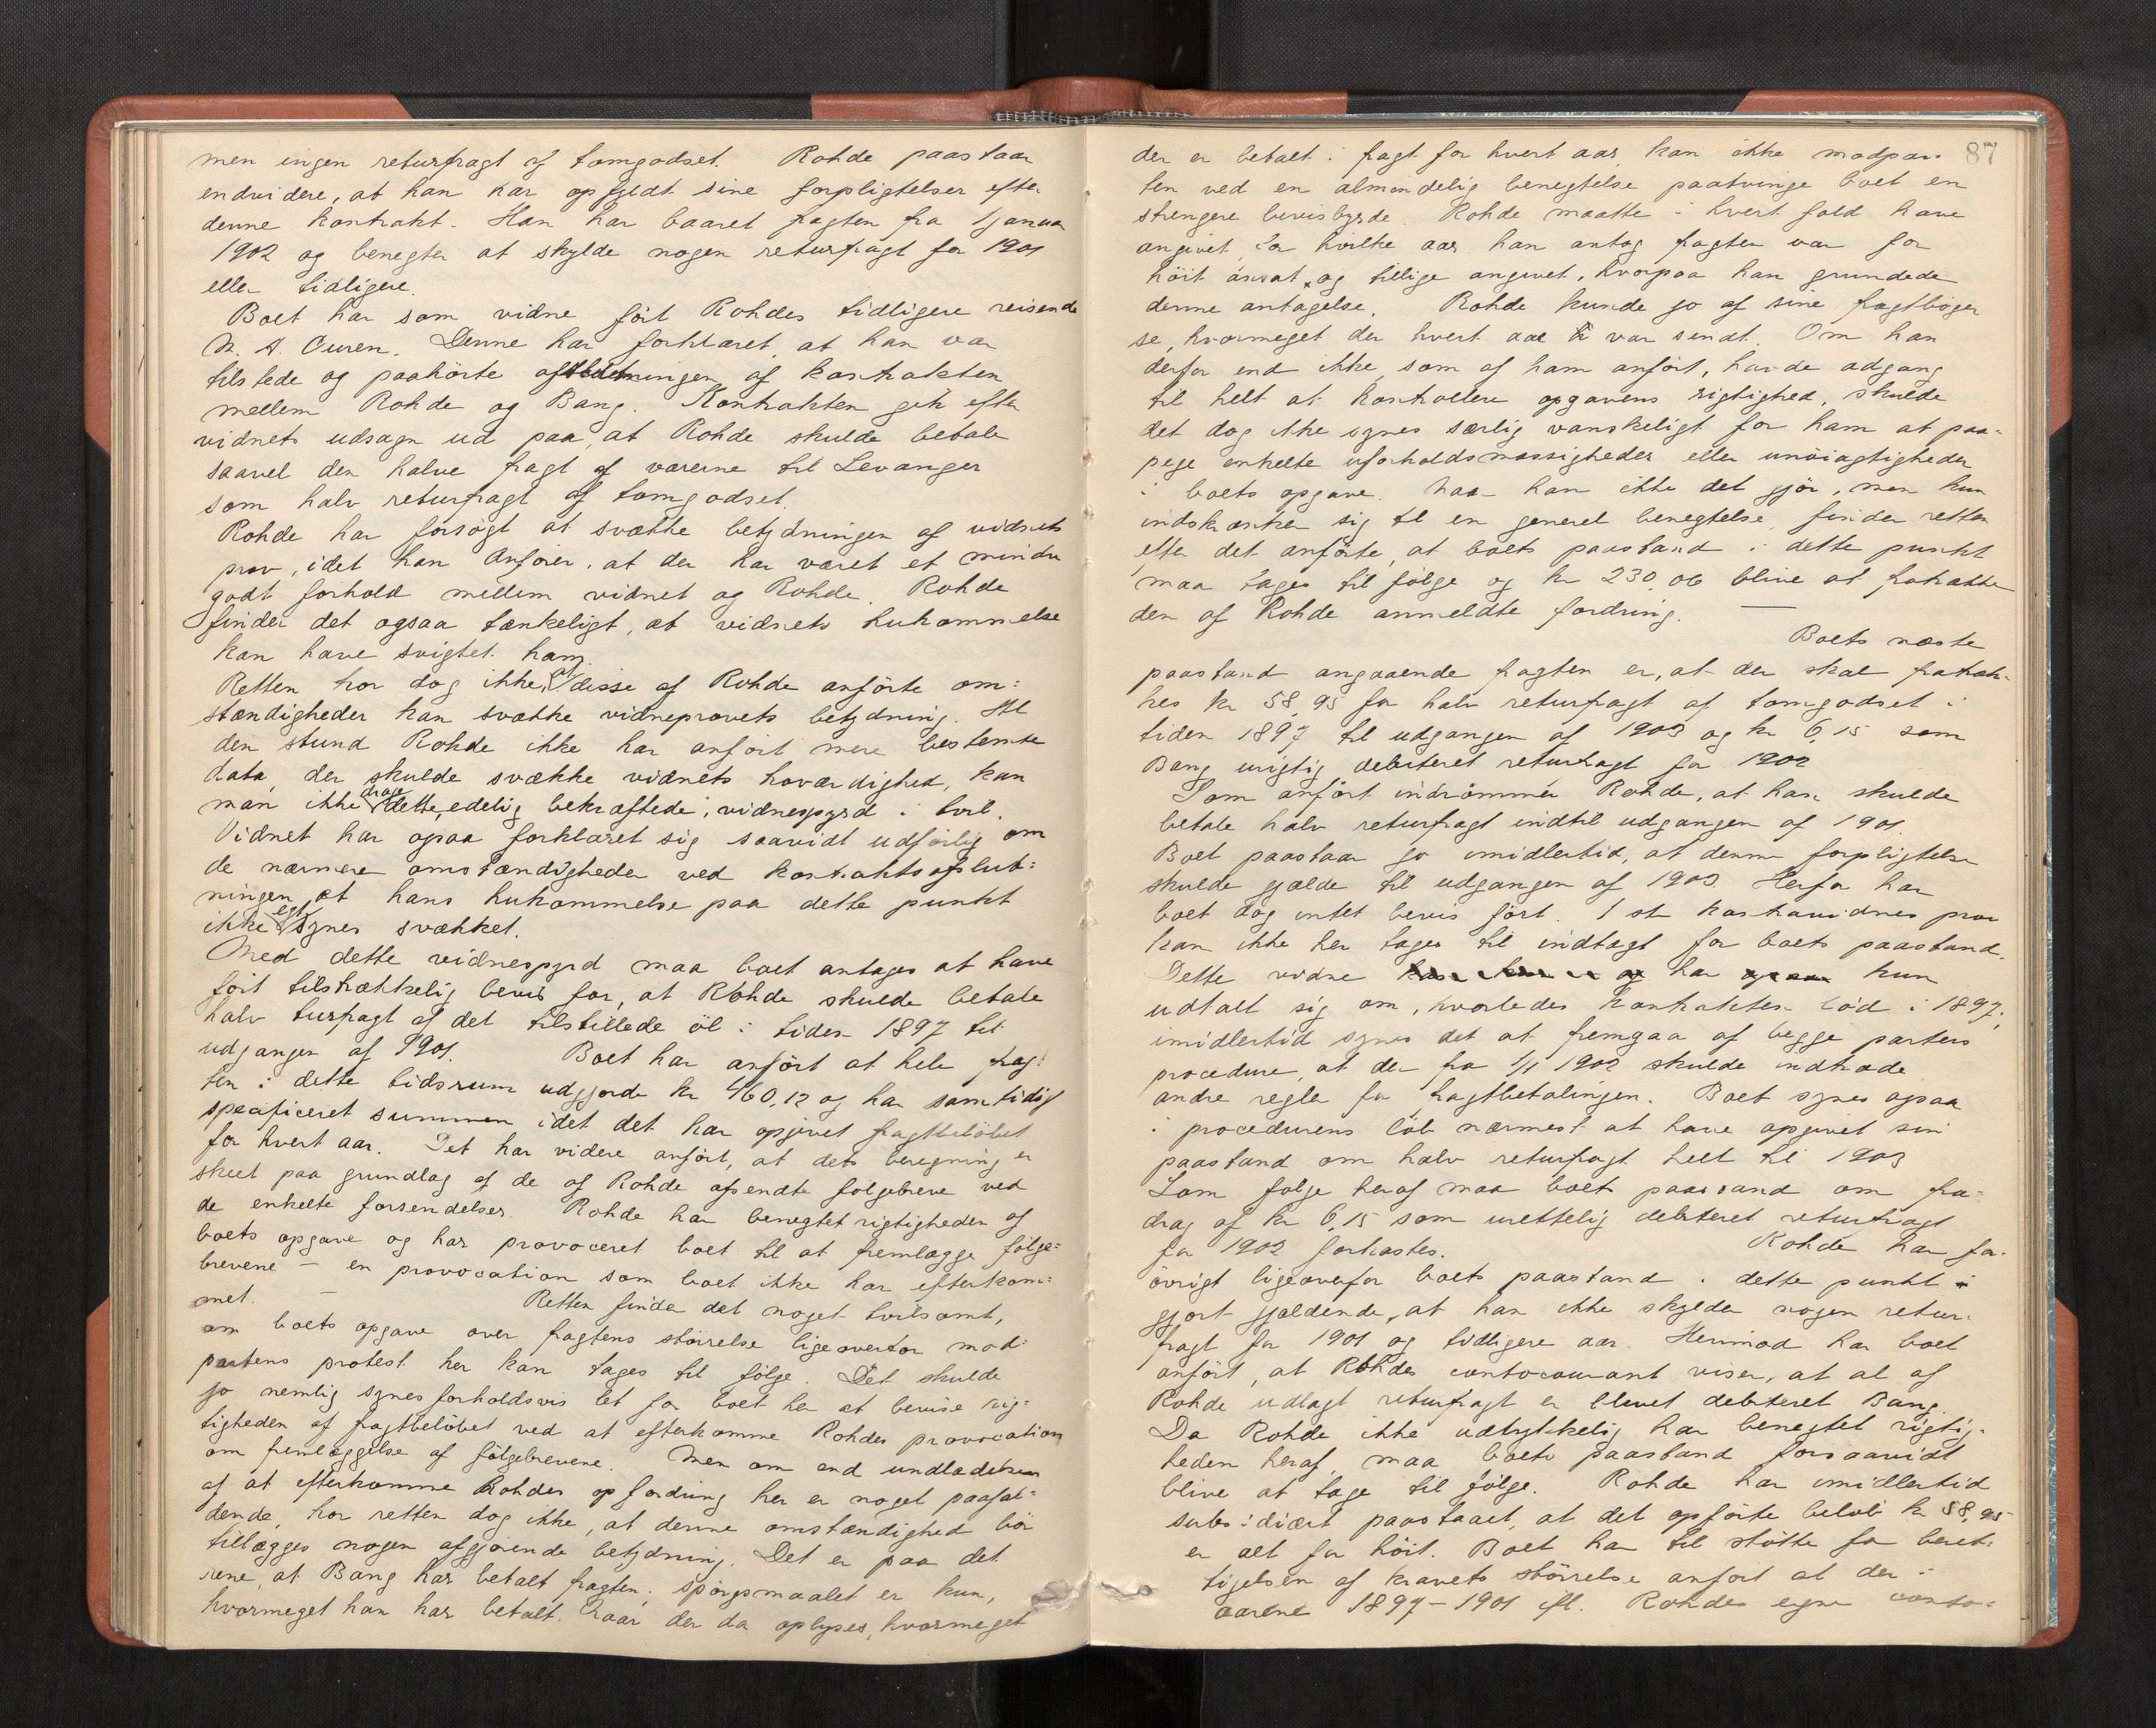 men ingen returfragt af tomgodset. Rohde paastaar
endvidere, at han har opfyldt sine forpligtelser efter
denne kontrakt. Han har baaret fragten fra 1 januar
1902 og benegter at skylde nogen returfragt for 1901
eller tidligere.
Boet har som vidne ført Rohdes tidligere reisende
N. A. Ouren. Denne har forklaret, at han var
tilstede og paahørte afslutningen af kontrakten
mellem Rohde og Bang. Kontrakten gik efter
vidnets udsagn ud paa, at Rohde skulde betale
saavel den halve fragt af varerne til Levanger
som halv returfragt af tomgodset.
Rohde har forsøgt at svække betydningen af vidnets
prov, idet han anfører, at der har været et mindre
godt forhold mellem vidnet og Rohde. Rohde
finder det ogsaa tænkeligt, at vidnets hukommelse
kan have svigtet ham.
Retten tror dog ikke, at disse af Rohde anførte om-
stændigheder kan svække vidneprovets betydning. Al
den stund Rohde ikke har anført mere bestemte
data, der skulde svække vidnets troværdighed, kan
man ikke drage dette, edelig bekræftede, vidnespyrd i tvil.
Vidnet har ogsaa forklaret sig saavidt udførlig om
de nærmere omstændigheder ved kontraktsafslut-
ningen, at hans hukommelse paa dette punkt
ikke synes svækket.
Med dette vidnespyrd maa boet antages at have
ført tilstrækkelig bevis for, at Rohde skulde betale
halv turfragt af det tilstillede øl i tiden 1897 til
udgangen af 1901. Boet har anført at hele frag-
ten i dette tidsrum udgjorde kr 460,12 og har samtidig
specificeret summen idet det har opgivet fragtbeløbet
for hvert aar. Det har videre anført, at dets beregning er
skeet paa grundlag af de af Rohde afsendte følgebreve ved
de enkelte forsendelser. Rohde har benegtet rigtigheden af
boets opgave og har provoceret boet til at fremlægge følge-
brevene – en provocation som boet ikke har efterkom-
met. – Retten finder det noget tvilsomt,
om boets opgave over fragtens størrelse ligeoverfor mod-
partens protest her kan tages til følge. Det skulde
jo nemlig synes forholdsvis let for boet her at bevise rig-
tigheden af fragtbeløbet ved at efterkomme Rohdes provocation
om fremlæggelse af følgebrevene. Men om end undladelsen
af at efterkomme Rohdes opfordring her er noget paafal-
dende, tror retten dog ikke, at denne omstændighed bør
tillægges nogen afgjørende betydning. Det er paa det
rene, at Bang har betalt fragten; spørgsmaalet er kun,
hvormeget han har betalt. Naar der da oplyses, hvormeget
87
der er betalt i fragt for hvert aar, kan ikke modpar-
ten ved en almindelig benegtelse paatvinge boet en
strengere bevisbyrde. Rohde maatte i hvert fald have
angivet, for hvilke aar han antog fragten var for
høit ansat, og tillige angivet, hvorpaa han grundede
denne antagelse. Rohde kunde jo af sine fragtbøger
se, hvormeget der hvert aar var sendt. Om han
derfor end ikke, som af ham anført, havde adgang
til helt at kontrollere opgavens rigtighed, skulde
det dog ikke synes særlig vanskeligt for ham at paa-
pege enkelte uforholdsmæssigheder eller unøiagtigheder
i boets opgave. Naar han ikke det gjør, men kun
indskrænker sig til en generel benegtelse, finder retten
efter det anførte, at boets paastand i dette punkt
maa tages til følge og kr 230,06 blive at fratrække
den af Rohde anmeldte fordring. –
Boets næste
paastand angaaende fragten er, at der skal fratræk-
kes kr 58,95 for halv returfragt af tomgodset i
tiden 1897 til udgangen af 1903 og kr 6,15 som
Bang urigtig debiteret returfragt for 1902
Som anført indrømmer Rohde, at han skulde
betale halv returfragt indtil udgangen af 1901.
Boet paastaar jo imidlertid, at denne forpligtelse
skulde gjælde til udgangen af 1903. Herfor har
boet dog intet bevis ført. 1 ste kontravidnes prov
kan ikke her tages til indtægt for boets paastand.
Dette vidne har kun
udtalt sig om, hvorledes kontrakten lød i 1897;
imidlertid synes det at fremgaa af begge parters
procedure, at der fra 1/1 1902 skulde indtræde
andre regler for fragtbetalingen. Boet synes ogsaa
i procedurens løb nærmest at have opgivet sin
paastand om halv returfragt helt til 1903
Som følge heraf maa boets paastand om fra-
drag af kr 6,15 som urettelig debiteret returfragt
for 1902 forkastes. Rohde har for-
øvrigt ligeoverfor boets paastand i dette punkt
gjort gjældende, at han ikke skylder nogen retur-
fragt for 1901 og tidligere aar. Herimod har boet
anført, at Rohdes contocourant viser, at al af
Rohde udlagt returfragt er blevet debiteret Bang.
Da Rohde ikke udtrykkelig har benegtet rigtig-
heden heraf, maa boets paastand forsaavidt
blive at tage til følge. Rohde har imidlertid
subsidiært paastaaet, at det opførte beløb kr 58,95
er alt for høit. Boet har til støtte for beret-
tigelsen af kravets størrelse anført at der i
aarene 1897–1901 ifl. Rohdes egne conto-